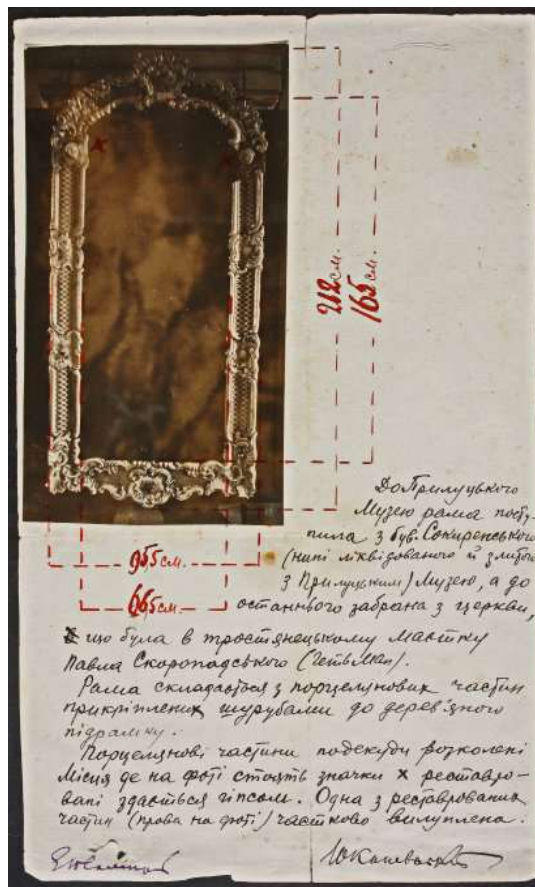 212 см.
165 см.
95,5 см.
66,5 см.
До Прилуцького
Музею рама посту-
пила з був. Сокиренського
(нині ліквідованого й злитого
з Прилуцьким) Музею, а до
останнього забрана з церкви,
що була в тростянецькому маєтку
Павла Скоропадського (Гетьман).
Рама складається з порцелянових частин
прикріплених шурубами до дерев'яного
підрамку.
Порцелянові частини подекуди розколені
Місця де на фоті стоять значки х реставро-
вані здається гіпсом. Одна з реставрованих
частин (права на фоті) частково вилуплена.